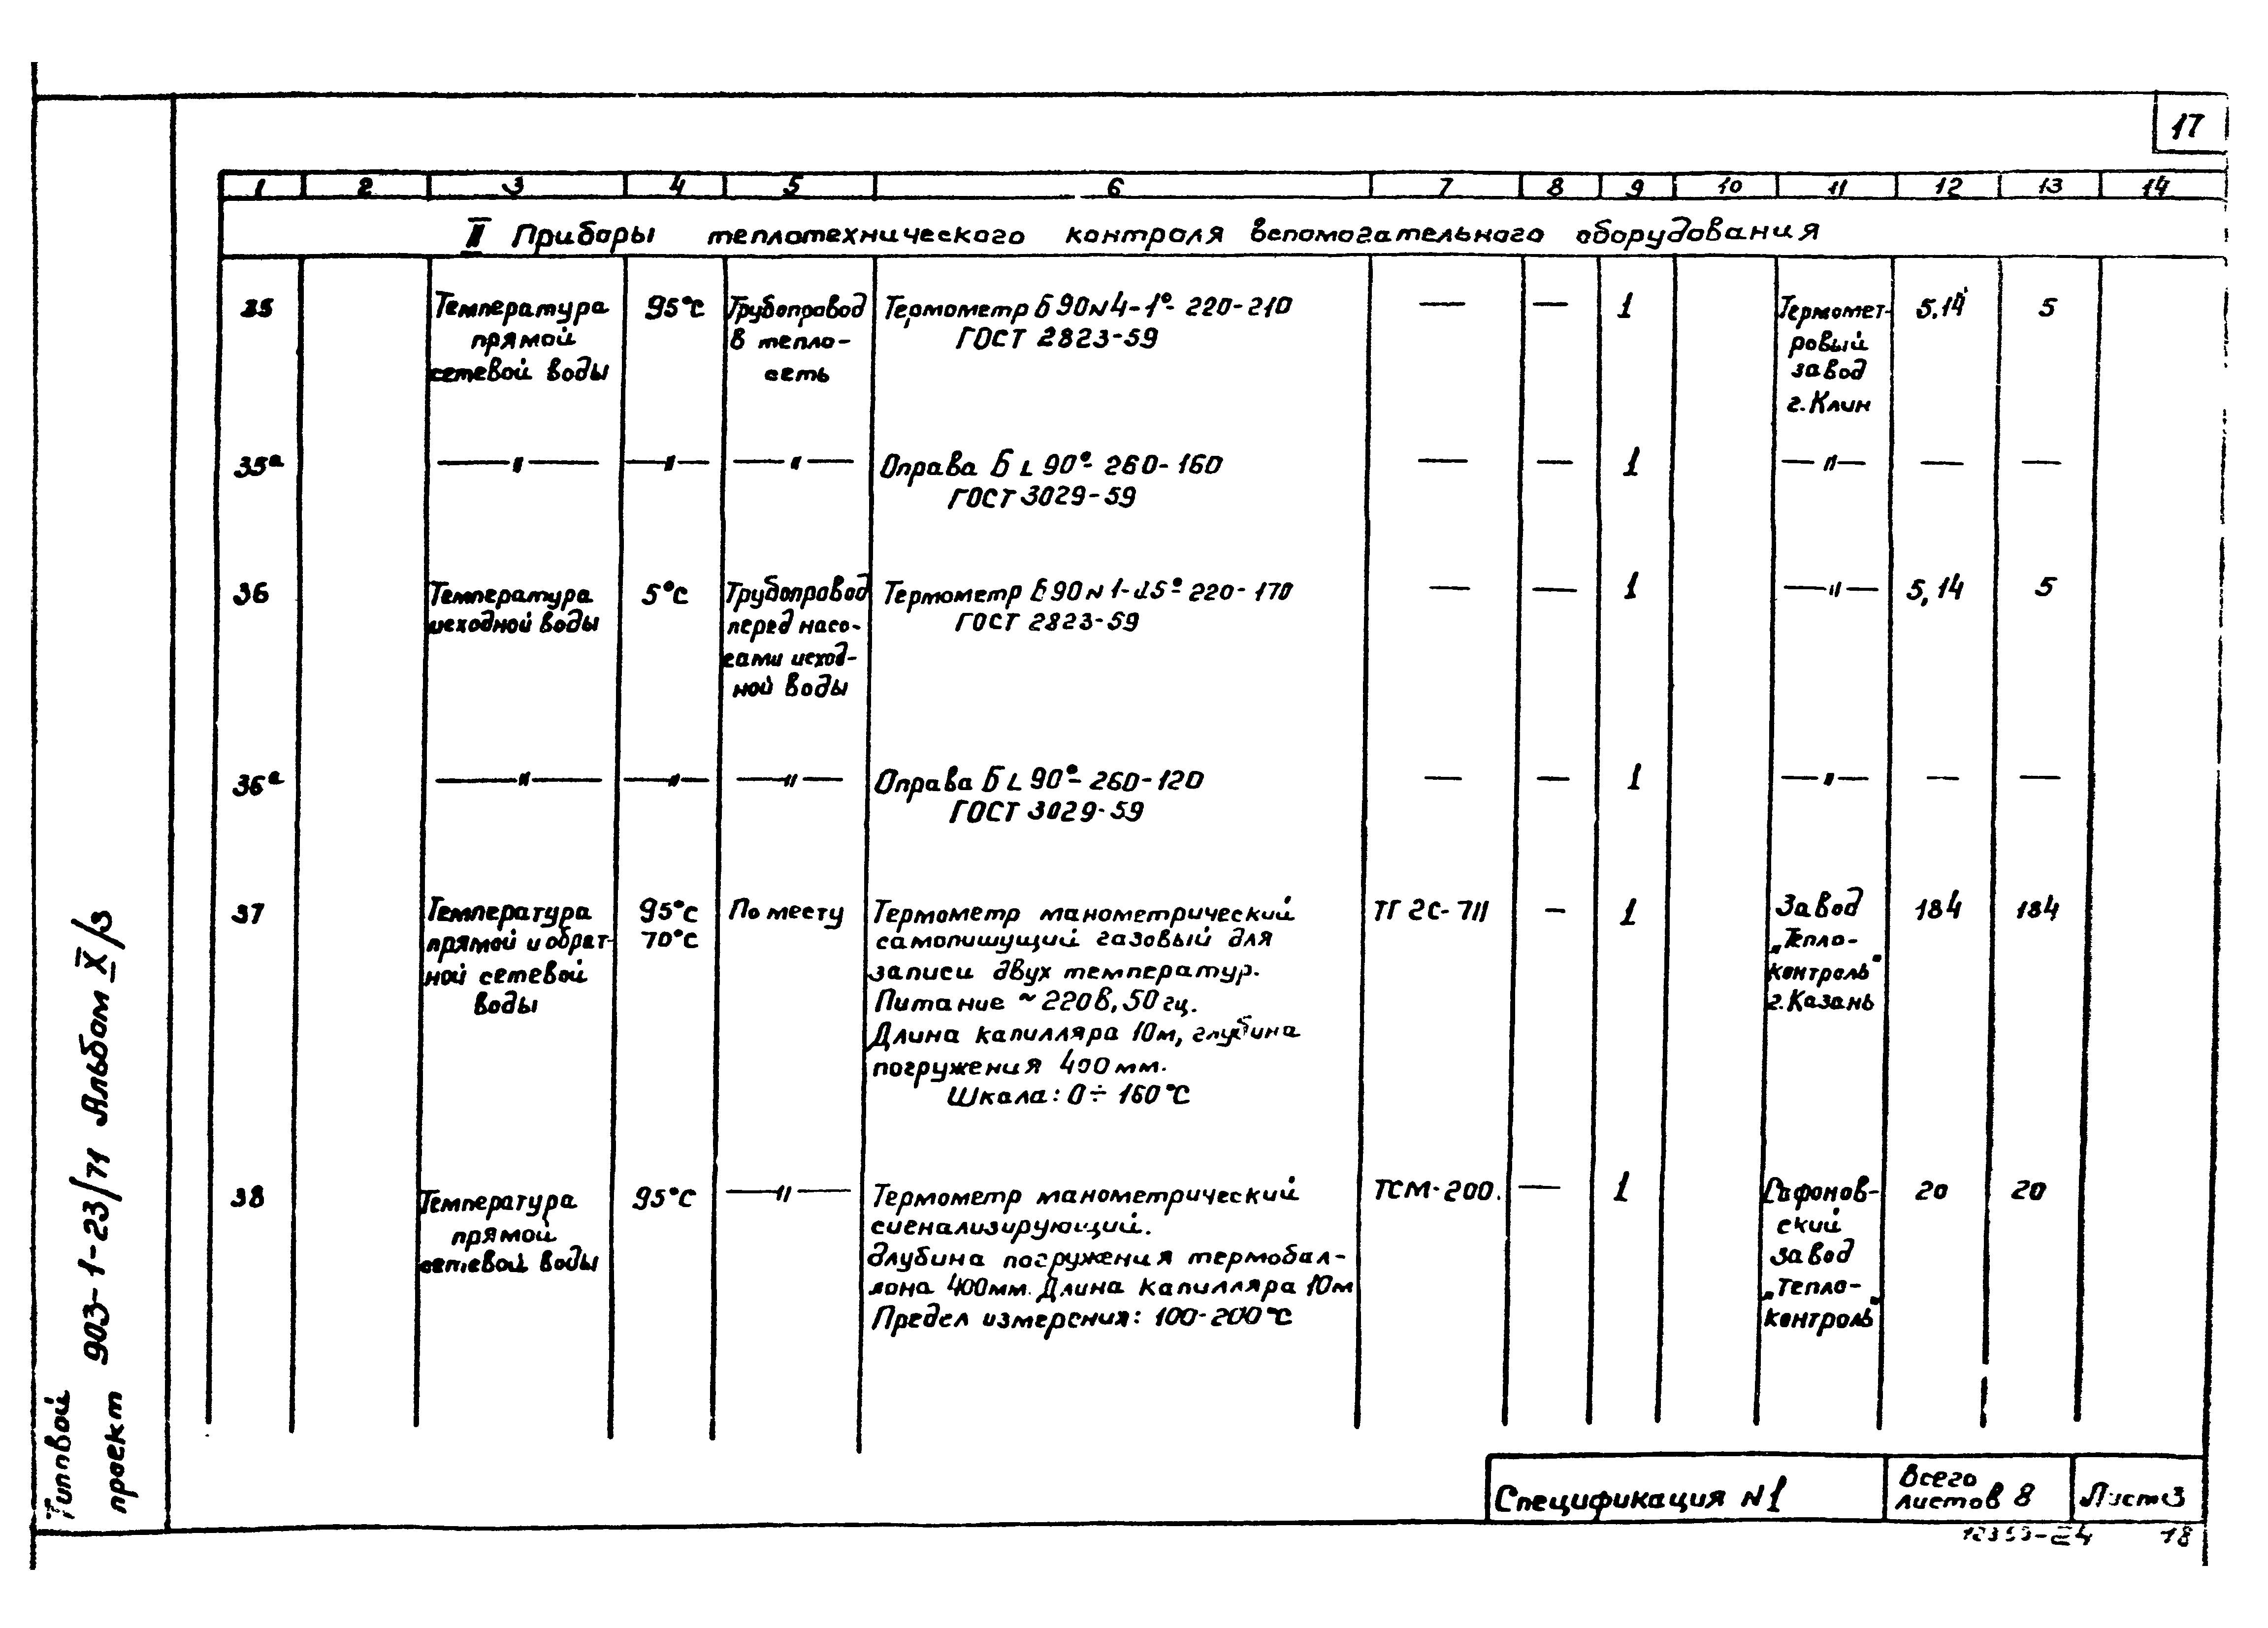 17
1 2 3 4 5 6 7 8 9 10 11 12 13 14
II Приборы теплотехнического контроля вспомогательного оборудования
35 Температура 95°С Трубопровод Термометр Б 90 N 4-1°- 220-210 — — 1 Термомет- 5,14 5
прямой в тепло- ГОСТ 2823-59 ровый
сетевой воды сеть завод
г. Клин
35а —"— —"— —"— Оправа Б L 90°- 260-160 — — 1 —"— — —
ГОСТ 3029-59
36 Температура 5°С Трубопровод Термометр Б 90 N 1-0.5°- 220-170 — — 1 —"— 5,14 5
исходной воды перед насо- ГОСТ 2823-59
сами исход-
ной воды
36а —"— —"— —"— Оправа Б L 90°- 260-120 — — 1 —"— — —
ГОСТ 3029-59
37 Температура 95°С По месту Термометр манометрический ТГ 2С-711 — 1 Завод 184 184
прямой и обрат- 70°С самопишущий газовый для „Тепло-
ной сетевой записи двух температур. контроль"
воды Питание ~ 220в, 50 гц. г. Казань
Длина капилляра 10м, глубина
погружения 400 мм.
Шкала: 0÷160°С
38 Температура 95°С —"— Термометр манометрический ТСМ-200. — 1 Сафонов- 20 20
прямой сигнализирующий. ский
сетевой воды Глубина погружения термобал- завод
лона 400мм. Длина капилляра 10м „тепло-
Предел измерения: 100-200°С контроль"
Типовой
проект 903-1-23/71 Альбом X/3
Спецификация N1
Всего
листов 8
Лист 3
18